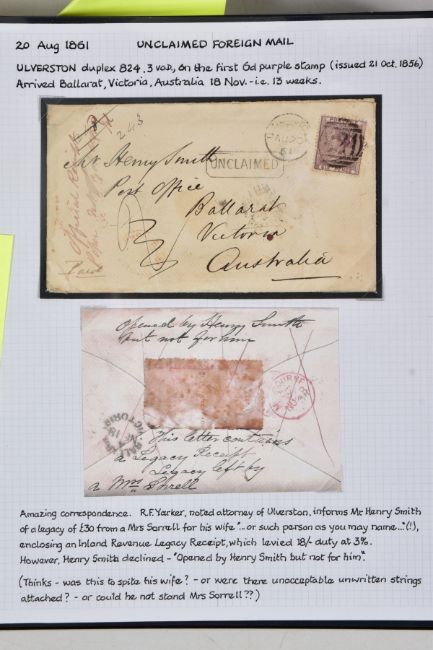 20 Aug 1861 UNCLAIMED FOREIGN MAIL
ULVERSTON duplex 824, 3 VOD, on the first 6d purple stamp (issued 21 Oct. 1856)
Arrived Ballarat, Victoria, Australia 18 Nov. - i.e. 13 weeks.
243
Mr Henry Smith
UNCLAIMED
Post Office
Ballarat
Victoria
Australia
opened by Henry Smith
but not for him
This letter contains
a Legacy Receipt
Legacy left by
a Mrs
Amazing correspondence. R.F. Yarker, noted attorney of Ulverston, informs Mr Henry Smith
of a legacy of £30 from a Mrs Sorrell for his wife "... or such person as you may name..." (!),
enclosing an Inland Revenue Legacy Receipt, which levied 18/- duty at 3%.
However, Henry Smith declined - "Opened by Henry Smith but not for him".
(Thinks - was this to spite his wife? - or were there unacceptable unwritten strings
attached? - or could he not stand Mrs Sorrell??)